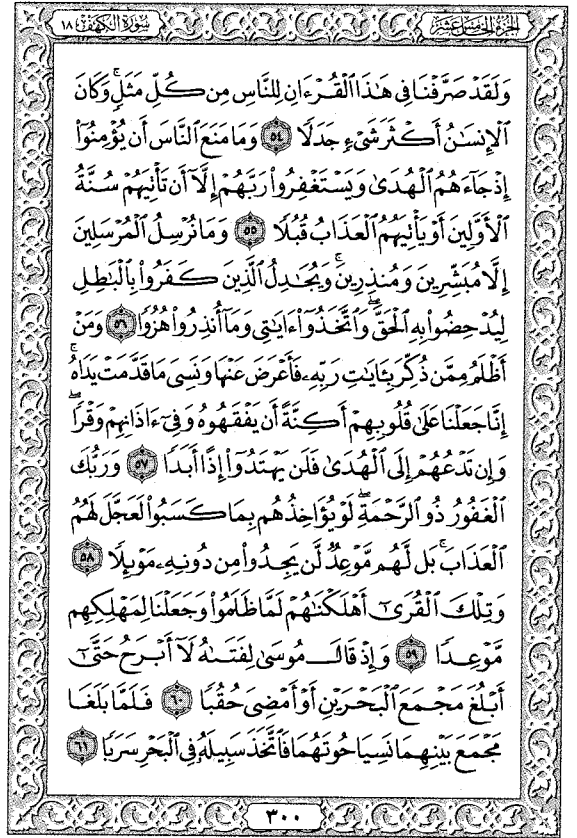 الجزء الخامس عشر
سورة الكهف ١٨
وَلَقَدْ صَرَّفْنَا فِي هَٰذَا الْقُرْءَانِ لِلنَّاسِ مِن كُلِّ مَثَلٍ ۚ وَكَانَ
الْإِنسَٰنُ أَكْثَرَ شَيْءٍ جَدَلًا ٥٤ وَمَا مَنَعَ النَّاسَ أَن يُؤْمِنُوٓا۟
إِذْ جَآءَهُمُ الْهُدَىٰ وَيَسْتَغْفِرُوا۟ رَبَّهُمْ إِلَّآ أَن تَأْتِيَهُمْ سُنَّةُ
الْأَوَّلِينَ أَوْ يَأْتِيَهُمُ الْعَذَابُ قُبُلًا ٥٥ وَمَا نُرْسِلُ الْمُرْسَلِينَ
إِلَّا مُبَشِّرِينَ وَمُنذِرِينَ ۚ وَيُجَٰدِلُ الَّذِينَ كَفَرُوا۟ بِالْبَٰطِلِ
لِيُدْحِضُوا۟ بِهِ الْحَقَّ ۖ وَاتَّخَذُوٓا۟ ءَايَٰتِي وَمَآ أُنذِرُوا۟ هُزُوًا ٥٦ وَمَنْ
أَظْلَمُ مِمَّن ذُكِّرَ بِـَٔايَٰتِ رَبِّهِۦ فَأَعْرَضَ عَنْهَا وَنَسِيَ مَا قَدَّمَتْ يَدَاهُ ۚ
إِنَّا جَعَلْنَا عَلَىٰ قُلُوبِهِمْ أَكِنَّةً أَن يَفْقَهُوهُ وَفِيٓ ءَاذَانِهِمْ وَقْرًا ۖ
وَإِن تَدْعُهُمْ إِلَى الْهُدَىٰ فَلَن يَهْتَدُوٓا۟ إِذًا أَبَدًا ٥٧ وَرَبُّكَ
الْغَفُورُ ذُو الرَّحْمَةِ ۖ لَوْ يُؤَاخِذُهُم بِمَا كَسَبُوا۟ لَعَجَّلَ لَهُمُ
الْعَذَابَ ۚ بَل لَّهُم مَّوْعِدٌ لَّن يَجِدُوا۟ مِن دُونِهِۦ مَوْئِلًا ٥٨
وَتِلْكَ الْقُرَىٰٓ أَهْلَكْنَٰهُمْ لَمَّا ظَلَمُوا۟ وَجَعَلْنَا لِمَهْلِكِهِم
مَّوْعِدًا ٥٩ وَإِذْ قَالَ مُوسَىٰ لِفَتَىٰهُ لَآ أَبْرَحُ حَتَّىٰٓ
أَبْلُغَ مَجْمَعَ الْبَحْرَيْنِ أَوْ أَمْضِيَ حُقُبًا ٦٠ فَلَمَّا بَلَغَا
مَجْمَعَ بَيْنِهِمَا نَسِيَا حُوتَهُمَا فَاتَّخَذَ سَبِيلَهُۥ فِي الْبَحْرِ سَرَبًا ٦١
٣٠٠